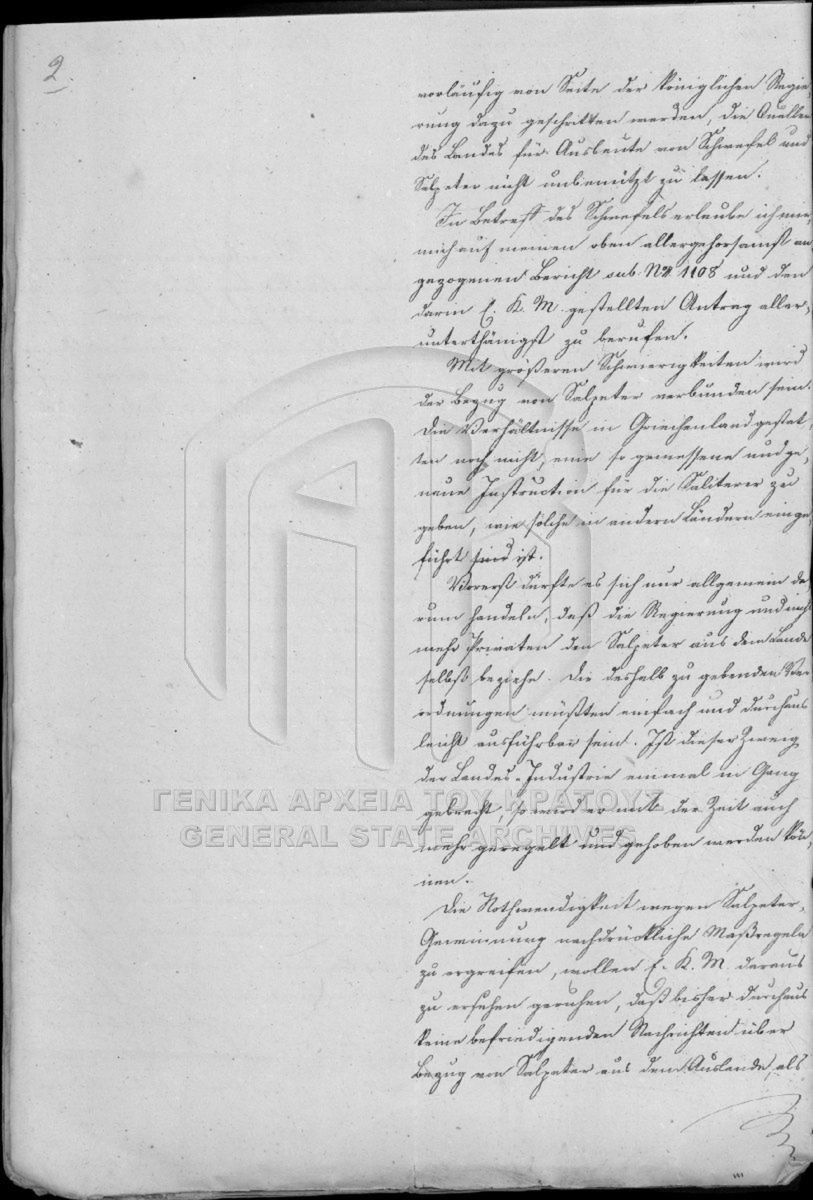 2
vorläufig von Seite der königlichen Regie-
rung dazu geschritten werden, die Quellen
des Landes für Ausbeute von Schwefel und
Salpeter nicht unbenützt zu lassen.
In Betreff des Schwefels erlaube ich mir,
mich auf meinen oben allergehorsamst an-
gezogenen Bericht sub. No. 1108 und den
darin E. K. M. gestellten Antrag aller-
unterthänigst zu berufen.
Mit größeren Schwierigkeiten wird
der Bezug von Salpeter verbunden sein.
Die Verhältnisse in Griechenland gestat-
ten noch nicht, eine so gemessene und ge-
naue Instruction für die Saliterer zu
geben, wie solche in andern Ländern einge-
führt sind ist.
Vorerst dürfte es sich nur allgemein da-
rum handeln, daß die Regierung und nicht
mehr Privaten den Salpeter aus dem Lande
selbst beziehe. Die deshalb zu gebenden Ver-
ordnungen müßten einfach und durchaus
leicht ausführbar sein. Ist dieser Zweig
der Landes-Industrie einmal in Gang
gebracht, so wird er mit der Zeit auch
mehr geregelt und gehoben werden kön-
nen.
Die Nothwendigkeit wegen Salpeter-
Gewinnung nachdrückliche Maßregeln
zu ergreifen, wollen E. K. M. daraus
zu ersehen geruhen, daß bisher durchaus
keine befriedigenden Nachrichten über
Bezug von Salpeter aus dem Auslande, als
ΓΕΝΙΚΑ ΑΡΧΕΙΑ ΤΟΥ ΚΡΑΤΟΥΣ
GENERAL STATE ARCHIVES